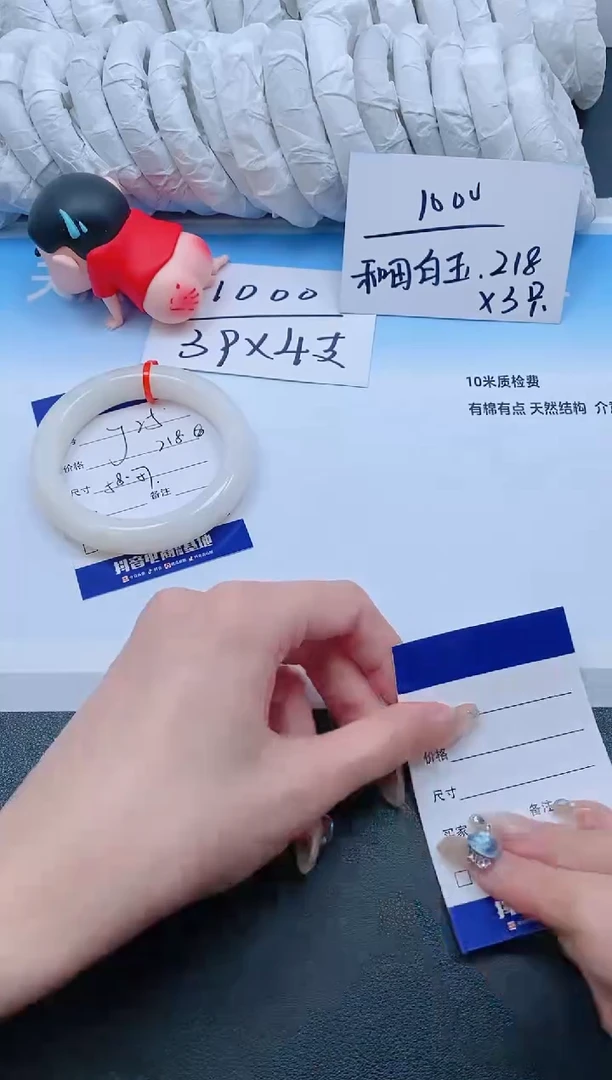 1000
和田白玉.218
X3只
1000
39X4支
10米质检费
有棉有点 天然结构 介
价格
218
尺寸 58
备注
抖音电商
价格
尺寸
备注
买家